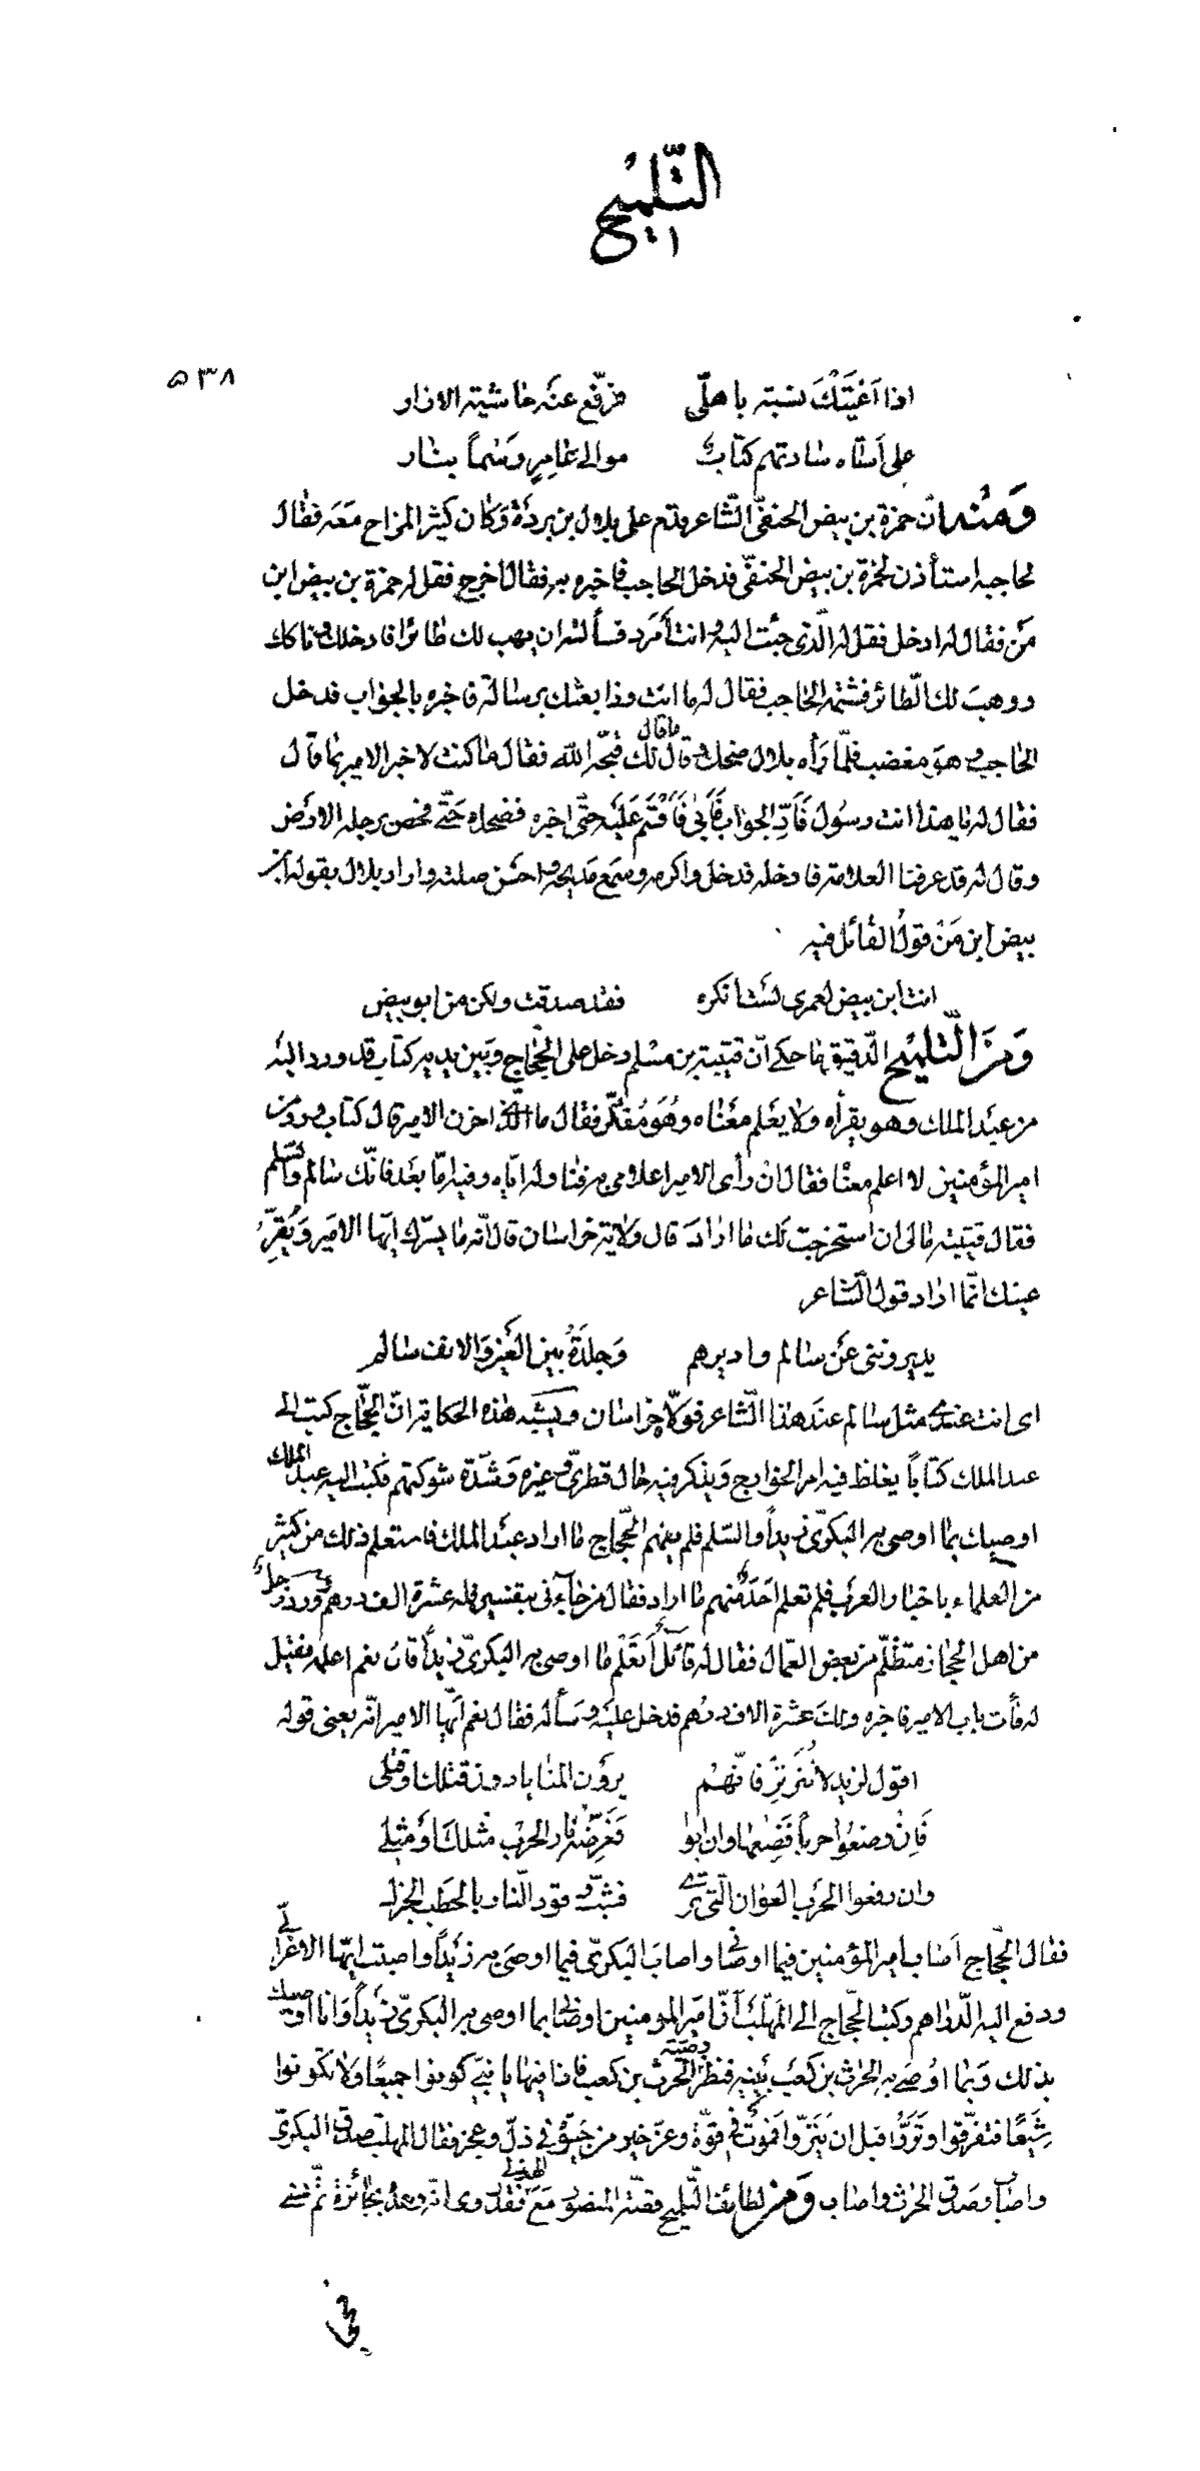 التلميح
٥٣٨
اذا اعيتك نسبة باهلي فرفع عنه حاشية الازار
على أستاه سادتهم كتاب موالى عامر وسما بنار
ومنه ان حمزة بن بيض الحنفى الشاعر قدم على بلال بن بردة وكان كثير المزاح معه فقال
لحاجبه استأذن لحمزة بن بيض الحنفى فدخل الحاجب فاخبره به فقال اخرج فقل له حمزة بن بيض ابن
من فقال له ادخل فقل له الذى جئت اليه وانت امرد فسألته ان يهب لك طائرا فادخلك وناكك
ووهب لك الطائر فشتمه الحاجب فقال له ما انت وذا بعثك برسالة فاخبره بالجواب فدخل
الحاجب وهو مغضب فلما رأه بلال ضحك وقال ما قال لك قبحه الله فقال ما كنت لاخبر الامير بما قال
فقال له يا هذا انت رسول فأد الجواب فأبى فأقسم عليه حتى اخبره فضحك حتى فحص برجله الارض
وقال له قد عرفنا العلامة فادخله فدخل واكرمه وسمع مديحه واحسن صلته واراد بلال بقوله ابن
بيض ابن من قول القائل فيه
انت ابن بيض لعمرى لست انكره فقد صدقت ولكن من ابو بيض
ومن التلميح الدقيق ما حكى ان قتيبة بن مسلم دخل على الحجاج وبين يديه كتاب قد ورد اليه
من عبد الملك وهو يقرأه ولا يعلم معناه وهو مفكر فقال ما الذى احزن الامير قال كتاب ورد من
امير المؤمنين لا اعلم معناه فقال ان رأى الامير اعلامى به فناوله اياه وفيه اما بعد فانك سالم والسلم
فقال قتيبة مالى ان استخرجت لك ما اراد قال ولاية خراسان قال انه ما يسرك ايها الامير ويقر
عينك انما اراد قول الشاعر
يديروننى عن سالم واديرهم وجلدة بين العين والانف سالم
اى انت عندى مثل سالم عند هذا الشاعر فولاه خراسان ويشبه هذه الحكاية ان الحجاج كتب الى
عبد الملك كتابا يغلظ فيه امر الخوارج ويذكر فيه حال قطرى وغيره وشدة شوكتهم فكتب اليه عبد الملك
اوصيك بما اوصى به البكرى زيدا والسلم فلم يفهم الحجاج ما اراد عبد الملك فاستعلم ذلك من كثير
من العلماء باخبار العرب فلم تعلم احد منهم ما اراد فقال من جاءنى بتفسيره فله عشرة الف درهم وورد رجل
من اهل الحجاز متظلم من بعض العمال فقال له قائل أتعلم ما اوصى به البكرى زيدا قال نعم اعلمه فقيل
له فأت باب الامير فاخبره ولك عشرة الاف درهم فدخل عليه وسأله فقال نعم ايها الامير انه يعنى قوله
اقول لزيد لا تترتر فانهم يرون المنايا دون قتلك او قتلى
فان وضعوا حربا فضعها وان ابوا فعرضة نار الحرب مثلك او مثلى
وان رفعوا الحرب العوان التى ترى فشب وقود النار بالحطب الجزل
فقال الحجاج اصاب امير المؤمنين فيما اوصانى واصاب البكرى فيما اوصى به زيدا واصبت ايها الاعرابى
ودفع اليه الدراهم وكتب الحجاج الى المهلب أن امير المومنين اوصانى بما اوصى به البكرى زيدا وانا اوصيك
بذلك وبما اوصى به الحرث بن كعب بنيه فنظر وصية الحرث بن كعب فاذا فيها يا بنى كونوا جميعا ولا تكونوا
شيعا فتفرقوا وتزودوا قبل ان تبتزوا فموت فى قوة وعز خير من حيوة فى ذل وعجز فقال المهلب صدق البكرى
واصاب وصدق الحرث واصاب ومن لطائف التلميح قصة المنصور مع الهذلى فقد روى انه وعده بجائزة ثم نسى